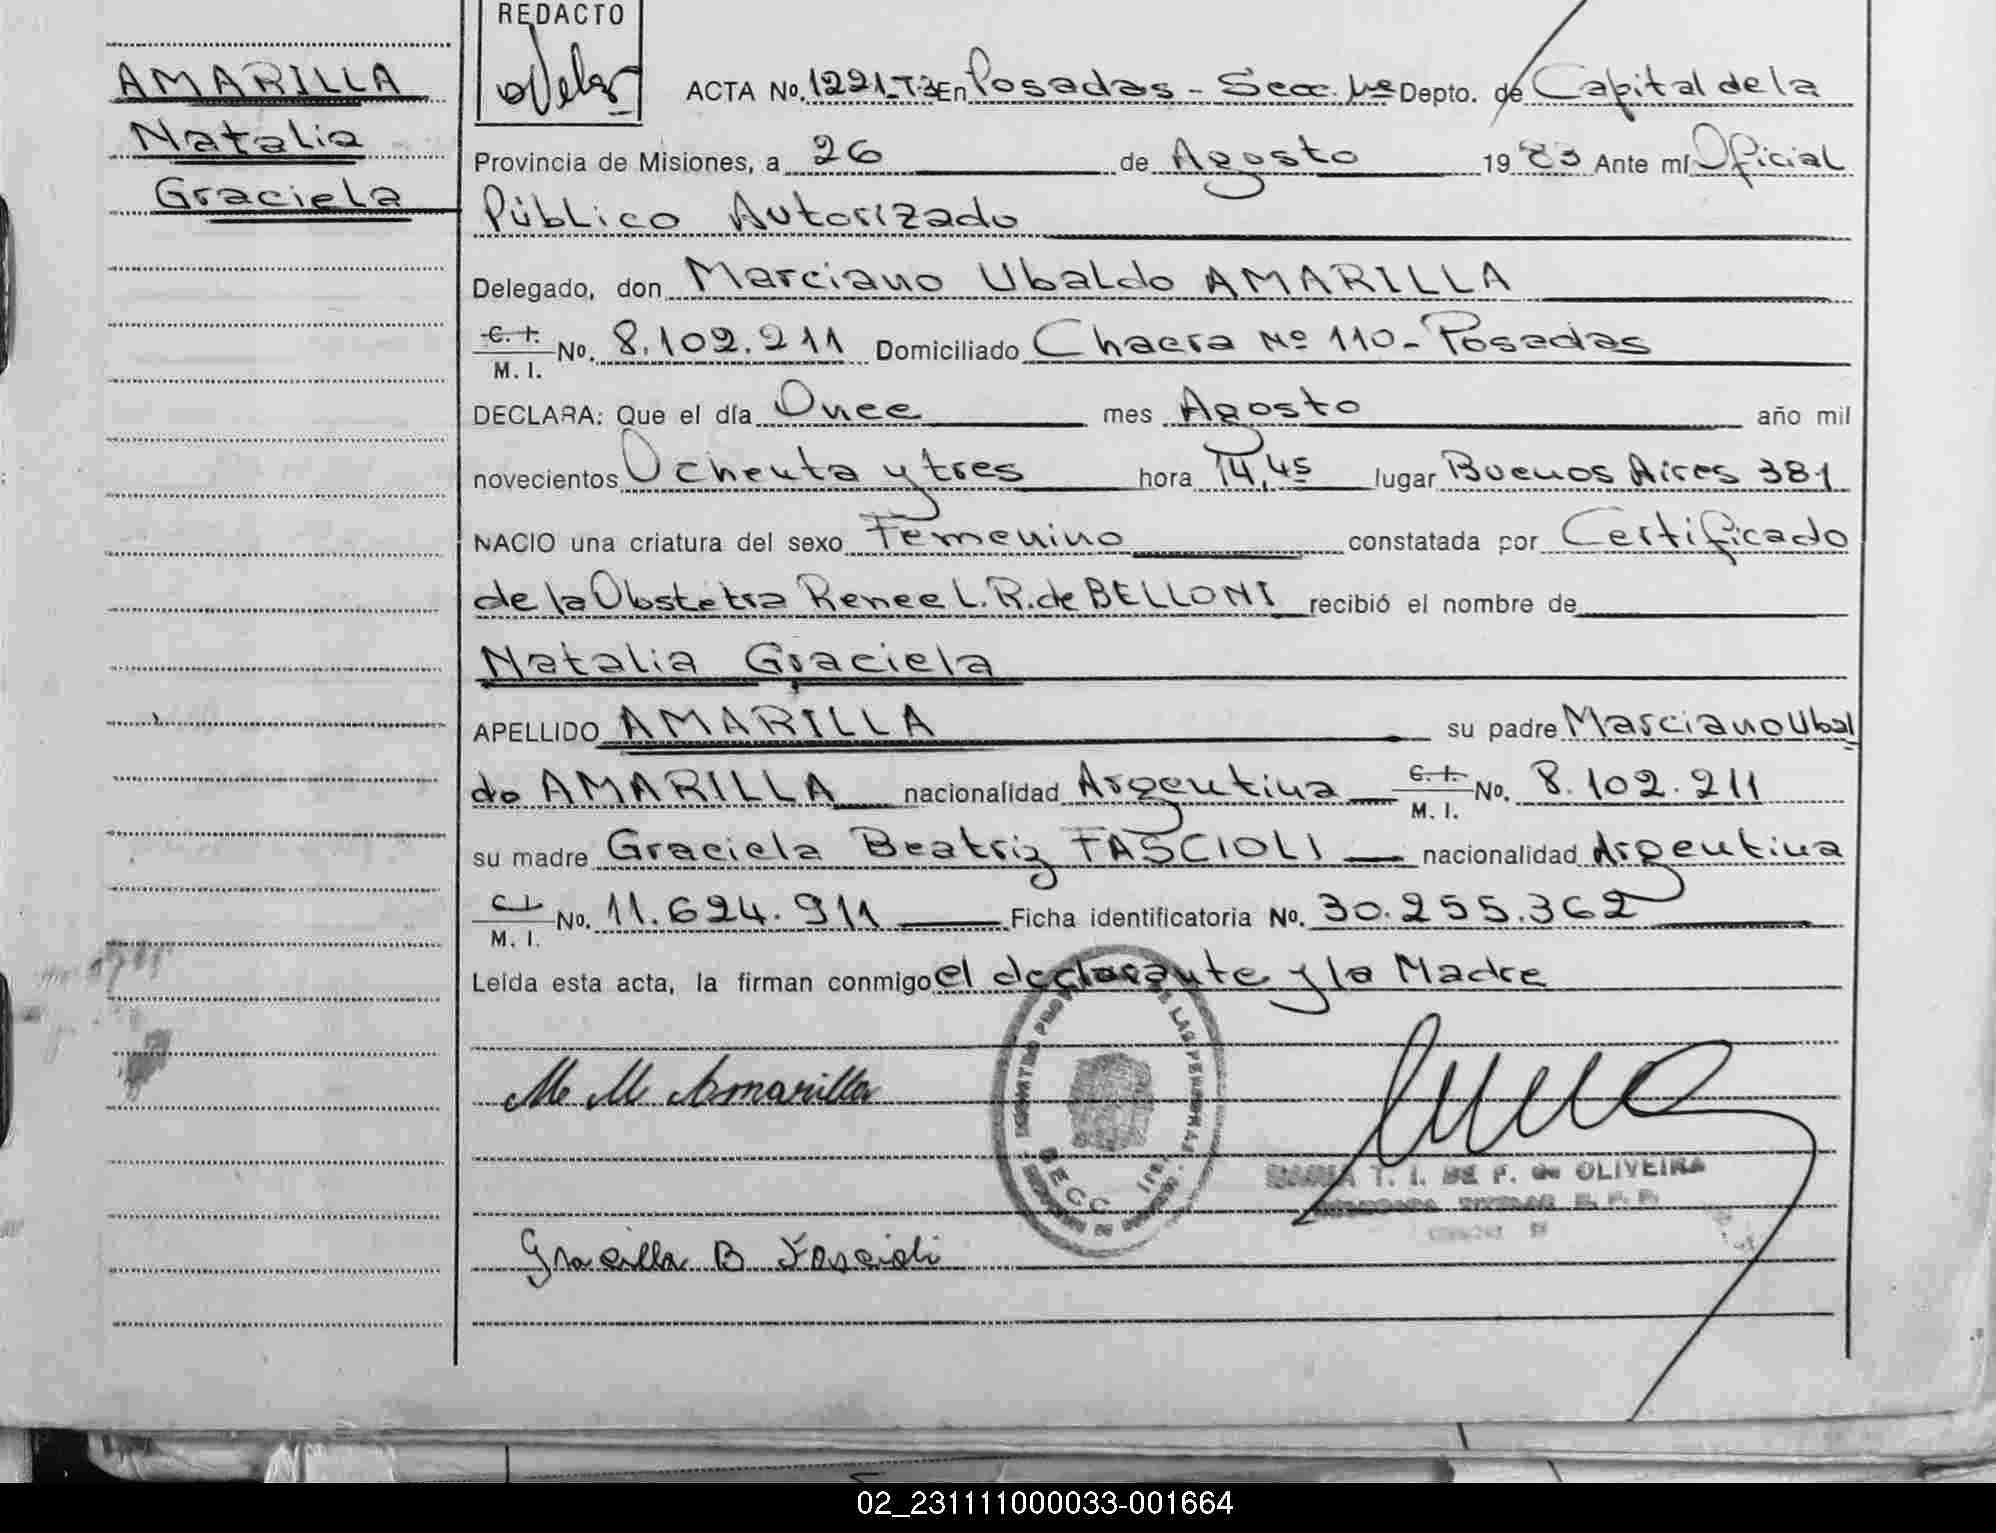 AMARILLA
Natalia
Graciela
REDACTO
ACTA No. 1221-T:3 En Posadas - Secc. 1ª Depto. de Capital de la
Provincia de Misiones, a 26 de Agosto 1983 Ante mí Oficial
Público Autorizado
Delegado, don Marciano Ubaldo AMARILLA
C. I. M. I. No. 8.102.211 Domiciliado Chacra Nº 110 - Posadas
DECLARA: Que el día Once mes Agosto año mil
novecientos Ochenta y tres hora 14,45 lugar Buenos Aires 381
NACIO una criatura del sexo Femenino constatada por Certificado
de la Obstetra Renee L. R. de BELLONI recibió el nombre de
Natalia Graciela
APELLIDO AMARILLA su padre Marciano Ubal
do AMARILLA nacionalidad Argentina C. I. M. I. No. 8.102.211
su madre Graciela Beatriz FASCIOLI nacionalidad Argentina
C. I. M. I. No. 11.624.911 Ficha identificatoria No. 30.255.362
Leída esta acta, la firman conmigo el declarante y la Madre
M. M. Amarilla
SECC
T. I. DE F. de OLIVEIRA
Graciella B Fascioli
02_231111000033-001664